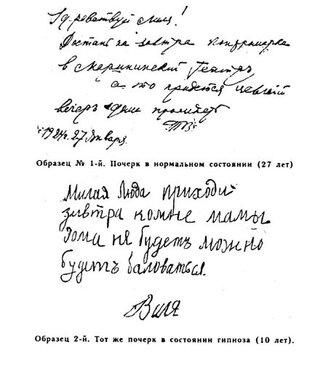 Здравствуй Миля!
Достань на завтра контрамарку
в Мариинский Театръ
а то придется
вечеръ
1924г. 27 Января
Образец № 1-й. Почерк в нормальном состоянии (27 лет)
Милая Люда приходи
завтра ко мне мамы
дома не будетъ можно
будетъ баловаться.
Виля
Образец 2-й. Тот же почерк в состоянии гипноза (10 лет).